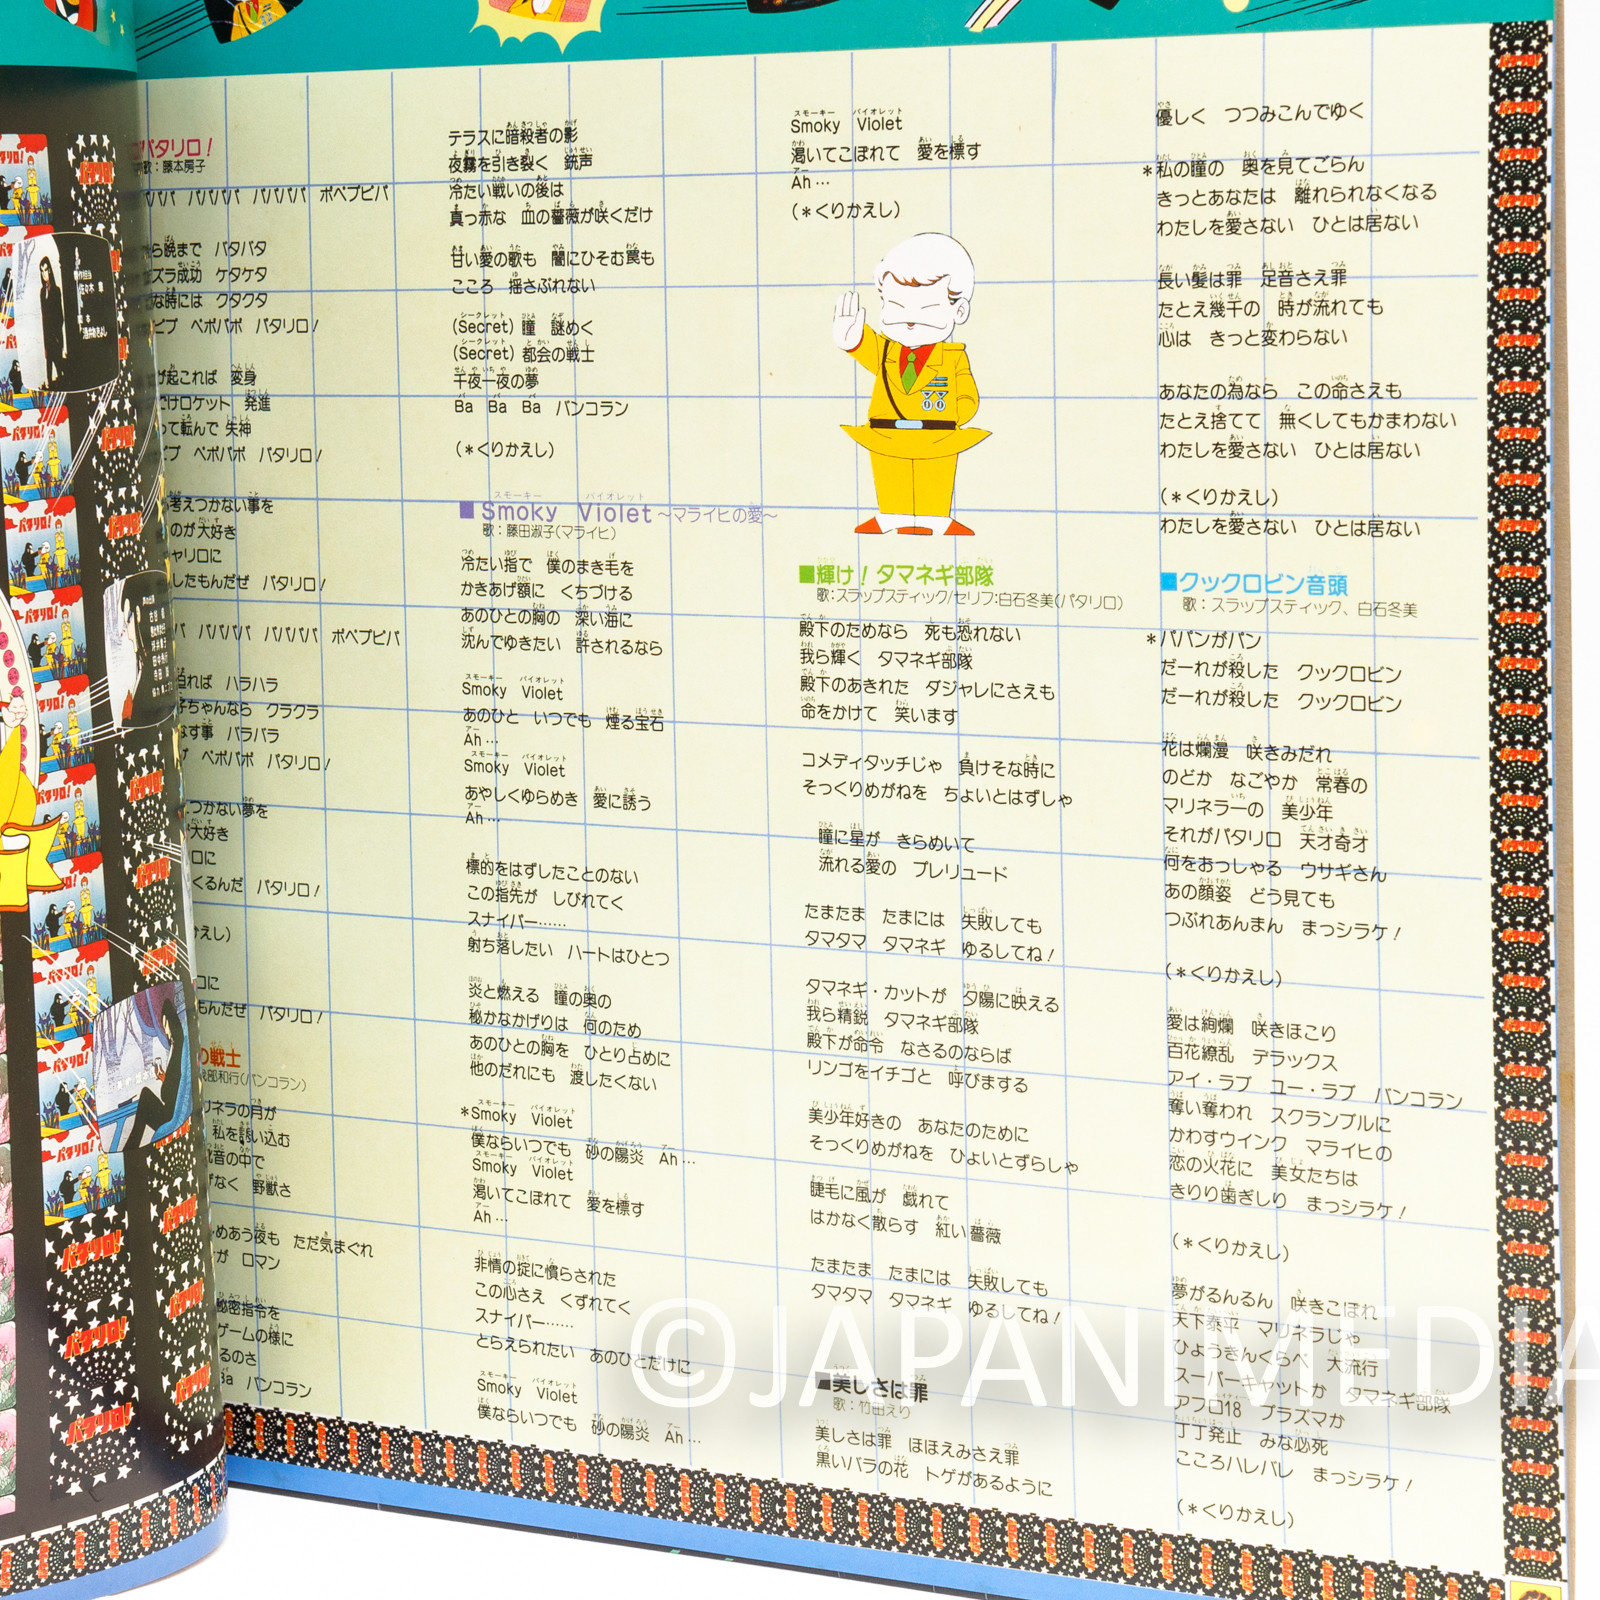 パタリロ！
歌：藤本房子
パパパ パパパパ パパパパ ポペプピパ
ら晩まで パタパタ
ズラ成功 ケタケタ
な時には クタクタ
ピプ ペポパポ パタリロ！
が起これば 変身
けロケット 発進
って転んで 失神
ピプ ペポパポ パタリロ！
考えつかない事を
のが大好き
ャリロに
したもんだぜ パタリロ！
パ パパパパ パパパパ ポペプピパ
迫れば ハラハラ
子ちゃんなら クラクラ
なす事 バラバラ
プ ペポパポ パタリロ！
つかない夢を
大好き
ロに
くるんだ パタリロ！
かえし）
ロに
もんだぜ パタリロ！
の戦士
和行（バンコラン）
リネラの月が
私を誘い込む
音の中で
げなく 野獣さ
めあう夜も ただ気まぐれ
が ロマン
秘密指令を
ゲームの様に
るのさ
Ba バンコラン
テラスに暗殺者の影
夜霧を引き裂く 銃声
冷たい戦いの後は
真っ赤な 血の薔薇が咲くだけ
甘い愛の歌も 闇にひそむ罠も
こころ 揺さぶれない
（Secret）瞳 謎めく
（Secret）都会の戦士
千夜一夜の夢
Ba Ba Ba バンコラン
（＊くりかえし）
■Smoky Violet～マライヒの愛～
歌：藤田淑子（マライヒ）
冷たい指で 僕のまき毛を
かきあげ額に くちづける
あのひとの胸の 深い海に
沈んでゆきたい 許されるなら
Smoky Violet
あのひと いつでも 煙る宝石
Ah…
Smoky Violet
あやしくゆらめき 愛に誘う
Ah…
標的をはずしたことのない
この指先が しびれてく
スナイパー……
射ち落したい ハートはひとつ
炎と燃える 瞳の奥の
秘かなかげりは 何のため
あのひとの胸を ひとり占めに
他のだれにも 渡したくない
＊Smoky Violet
僕ならいつでも 砂の陽炎 Ah…
Smoky Violet
渇いてこぼれて 愛を標す
Ah…
非情の掟に慣らされた
この心さえ くずれてく
スナイパー……
とらえられたい あのひとだけに
Smoky Violet
僕ならいつでも 砂の陽炎 Ah…
Smoky Violet
渇いてこぼれて 愛を標す
Ah…
（＊くりかえし）
■輝け！タマネギ部隊
歌：スラップスティック/セリフ：白石冬美（パタリロ）
殿下のためなら 死も恐れない
我ら輝く タマネギ部隊
殿下のあきれた ダジャレにさえも
命をかけて 笑います
コメディタッチじゃ 負けそな時に
そっくりめがねを ちょいとはずしゃ
瞳に星が きらめいて
流れる愛の プレリュード
たまたま たまには 失敗しても
タマタマ タマネギ ゆるしてね！
タマネギ・カットが 夕陽に映える
我ら精鋭 タマネギ部隊
殿下が命令 なさるのならば
リンゴをイチゴと 呼びまする
美少年好きの あなたのために
そっくりめがねを ひょいとずらしゃ
睫毛に風が 戯れて
はかなく散らす 紅い薔薇
たまたま たまには 失敗しても
タマタマ タマネギ ゆるしてね！
■美しさは罪
歌：竹田えり
美しさは罪 ほほえみさえ罪
黒いバラの花 トゲがあるように
優しく つつみこんでゆく
＊私の瞳の 奥を見てごらん
きっとあなたは 離れられなくなる
わたしを愛さない ひとは居ない
長い髪は罪 足音さえ罪
たとえ幾千の 時が流れても
心は きっと変わらない
あなたの為なら この命さえも
たとえ捨てて 無くしてもかまわない
わたしを愛さない ひとは居ない
（＊くりかえし）
わたしを愛さない ひとは居ない
■クックロビン音頭
歌：スラップスティック、白石冬美
＊パパンがパン
だーれが殺した クックロビン
だーれが殺した クックロビン
花は爛漫 咲きみだれ
のどか なごやか 常春の
マリネラーの 美少年
それがパタリロ 天才奇才
何をおっしゃる ウサギさん
あの顔姿 どう見ても
つぶれあんまん まっシラケ！
（＊くりかえし）
愛は絢爛 咲きほこり
百花繚乱 デラックス
アイ・ラブ ユー・ラブ バンコラン
奪い奪われ スクランブルに
かわすウインク マライヒの
恋の火花に 美女たちは
きりり歯ぎしり まっシラケ！
（＊くりかえし）
夢がるんるん 咲きこぼれ
天下泰平 マリネラじゃ
ひょうきんくらべ 大流行
スーパーキャットか タマネギ部隊
アフロ18 プラズマか
丁丁発止 みな必死
こころハレバレ まっシラケ！
（＊くりかえし）
©JAPANIMEDIA